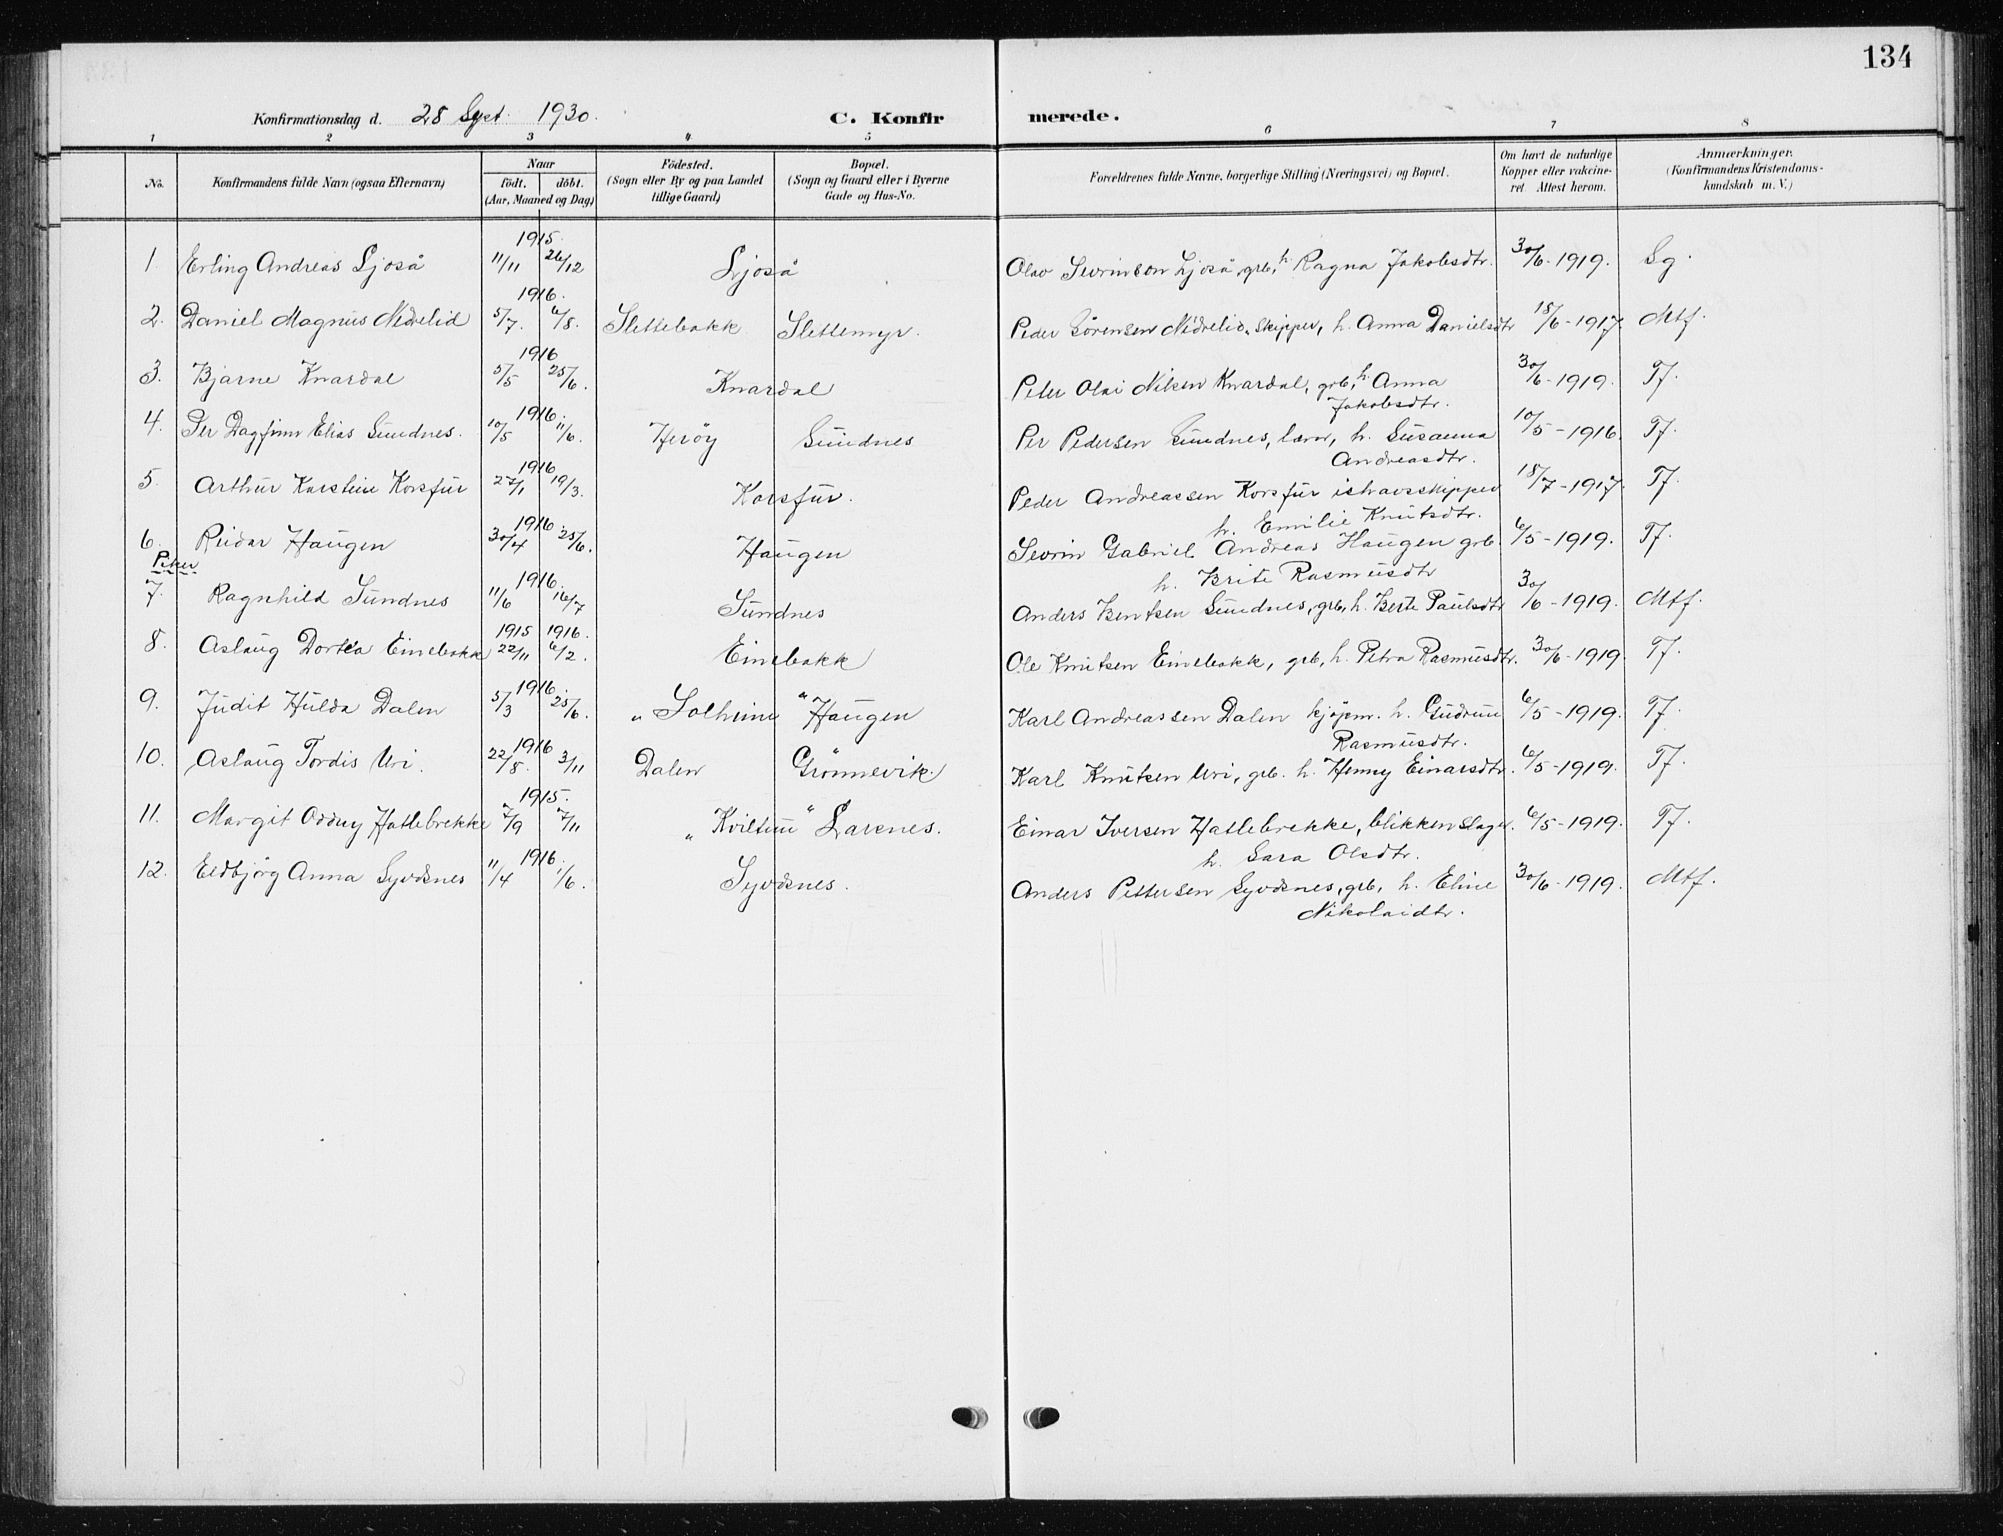 134
Konfirmationsdag d. 28 Sept. 1930. C. Konfirmerede.
1 2 3 4 5 6 7 8
No. Konfirmandens fulde Navn (ogsaa Efternavn) Naar födt. döbt. (Aar, Maaned og Dag) Födested. (Sogn eller By og paa Landet tillige Gaard) Bopæl. (Sogn og Gaard eller i Byerne Gade og Hus-No. Forældrenes fulde Navne, borgerlige Stilling (Næringsvei) og Bopæl. Om havt de naturlige Kopper eller vakcineret. Attest herom. Anmærkninger. (Konfirmandens Kristendomskundskab m. V.)
1915.
1. Erling Andreas Ljoså 11/11 26/12 Ljoså Olav Sevrinson Ljoså, grb, h. Ragna Jakobsdtr. 30/6-1919. Sg.
1916.
2. Daniel Magnus Nedrelid 5/7. 6/8. Slettebakk Slettemyr. Peder Sørensen Nedrelid, skipper, h. Anna Danielsdtr 18/6-1917. Mtf.
1916
3. Bjarne Knardal 5/5 25/6. Knardal Peter Olai Nilsen Knardal, grb, h. Anna 30/6-1919. Tf.
Jakobsdtr.
1916.
4. Per Dagfinn Elias Sundnes. 10/5 11/6. Herøy Sundnes Per Pedersen Sundnes, lærer, h. Susanna 10/5-1916. Tf.
Andreasdtr.
1916
5. Arthur Karstein Korsfur 27/1 19/3. Korsfur. Peder Andreassen Korsfur ishavsskipper 18/7-1917. Tf.
h. Emilie Knutsdtr.
1916.
6. Reidar Haugen 30/4 25/6. Haugen Sevrin Gabriel Andreas Haugen grb. 6/5-1919. Tf.
h. Brite Rasmusdtr
Piker
1916.
7. Ragnhild Sundnes 11/6 16/7 Sundnes Anders Bentsen Sundnes, grb, h. Berte Paulsdtr 30/6-1919. Mtf.
1915 1916.
8. Aslaug Dortea Einebakk 22/11 6/2. Einebakk Ole Knutsen Einebakk, grb, h. Petra Rasmusdtr. 30/6-1919. Tf.
1916.
9. Judit Hulda Dalen 5/3 25/6. „ Solheim “ Haugen Karl Andreassen Dalen kjøpm. h. Gudrun 6/5-1919. Tf.
Rasmusdtr.
1916
10. Aslaug Tordis Uri. 22/8. 3/11 Dalen Grønnevik. Karl Knutsen Uri, grb. h. Henny Einarsdtr. 6/5-1919. Tf.
1915.
11. Margit Oddny Hatlebrekke 7/9 7/11 „ Kviltun “ Larsnes. Einar Iversen Hatlebrekke, blikkenslager. 6/5-1919. Tf.
h. Sara Olsdtr.
1916.
12. Eldbjørg Anna Syvdsnes 11/4 1/6. Syvdsnes. Anders Pettersen Syvdsnes, grb, h. Eline 30/6-1919. Mtf.
Nikolaidtr.